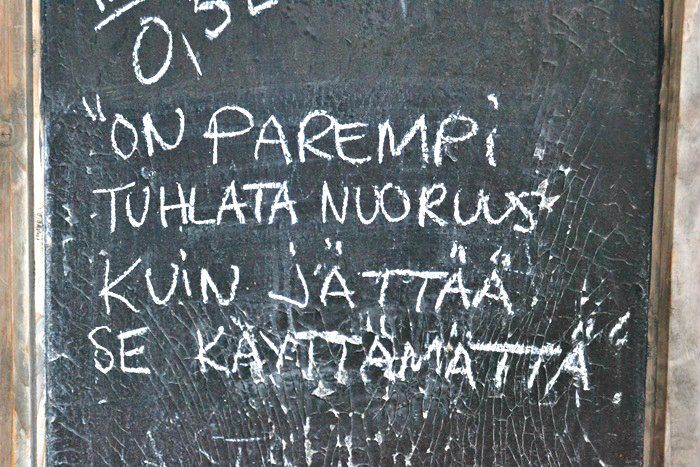 0,5
"ON PAREMPI
TUHLATA NUORUUS
KUIN JÄTTÄÄ
SE KÄYTTÄMÄTTÄ"